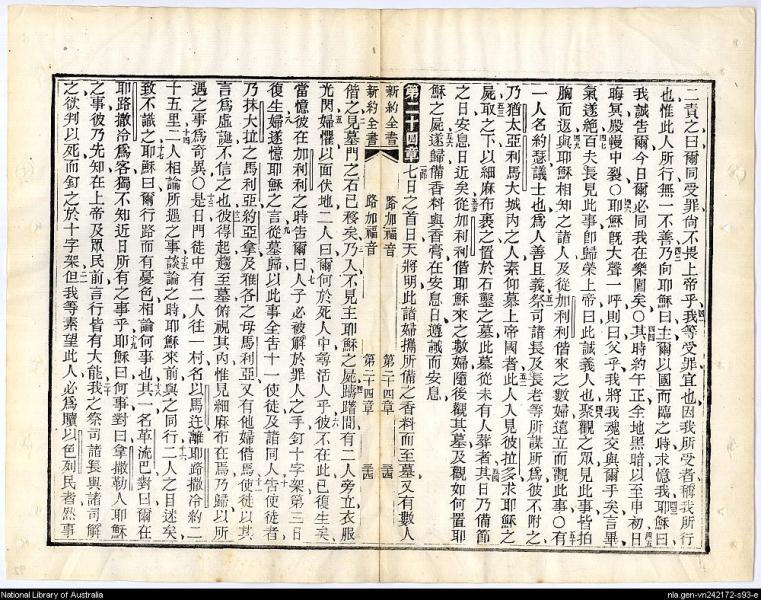 二責之曰爾同受罪尙不畏上帝乎我等受罪宜也因我所受者稱我所行
也惟此人所行無一不善乃向耶穌曰主爾以國而臨之時求憶我耶穌曰
我誠告爾今日爾必同我在樂園矣○其時約午正全地黑暗以至申初日
晦冥殿幔中裂○耶穌旣大聲一呼則曰父乎我將我魂交與爾手矣言畢
氣遂絕百夫長見此事卽歸榮上帝曰此誠義人也聚觀之眾見此事皆拍
胸而返與耶穌相知之諸人及從加利利偕來之數婦遠立而觀此事○有
一人名約瑟議士也爲人善且義祭司諸長及長老等所謀所爲彼不附之
乃猶太亞利馬大城內之人素仰慕上帝國者此人入見彼拉多求耶穌之
屍取之下以細麻布裹之置於石鑿之墓此墓從未有人葬者其日乃備節
之日安息日近矣從加利利偕耶穌來之數婦隨後觀其墓及觀如何置耶
穌之屍遂歸備香料與香膏在安息日遵誡而安息
第二十四章 七日之首日天將明此諸婦攜所備之香料而至墓又有數人
新約全書 路加福音 第二十四章
新約全書 路加福音 第二十四章
偕之見墓門之石已移矣乃入不見主耶穌之屍躊躇間有二人旁立衣服
光閃婦懼以面伏地二人曰爾何於死人中尋活人乎彼不在此已復生矣
當憶彼在加利利之時告爾曰人子必被解於罪人之手釘十字架第三日
復生婦遂憶耶穌之言從墓歸以此事全告十一使徒及諸同人告使徒者
乃抹大拉之馬利亞約亞拿及雅各之母馬利亞又有他婦偕焉使徒以其
言爲虛誕不信之也彼得起趨至墓俯視其內惟見細麻布在焉乃歸以所
遇之事爲奇異○是日門徒中有二人往一村名以馬迕離耶路撒冷約二
十五里二人相論所遇之事談論之時耶穌來前與之同行二人之目迷矣
致不識之耶穌曰爾行路而有憂色相論何事也其一名革流巴對曰爾在
耶路撒冷爲客獨不知近日所有之事乎耶穌曰何事對曰拿撒勒人耶穌
之事彼乃先知在上帝及眾民前言行皆有大能我之祭司諸長與諸司解
之欲判以死而釘之於十字架但我等素望此人必爲贖以色列民者然事
National Library of Australia
nla.gen-vn242172-s93-e